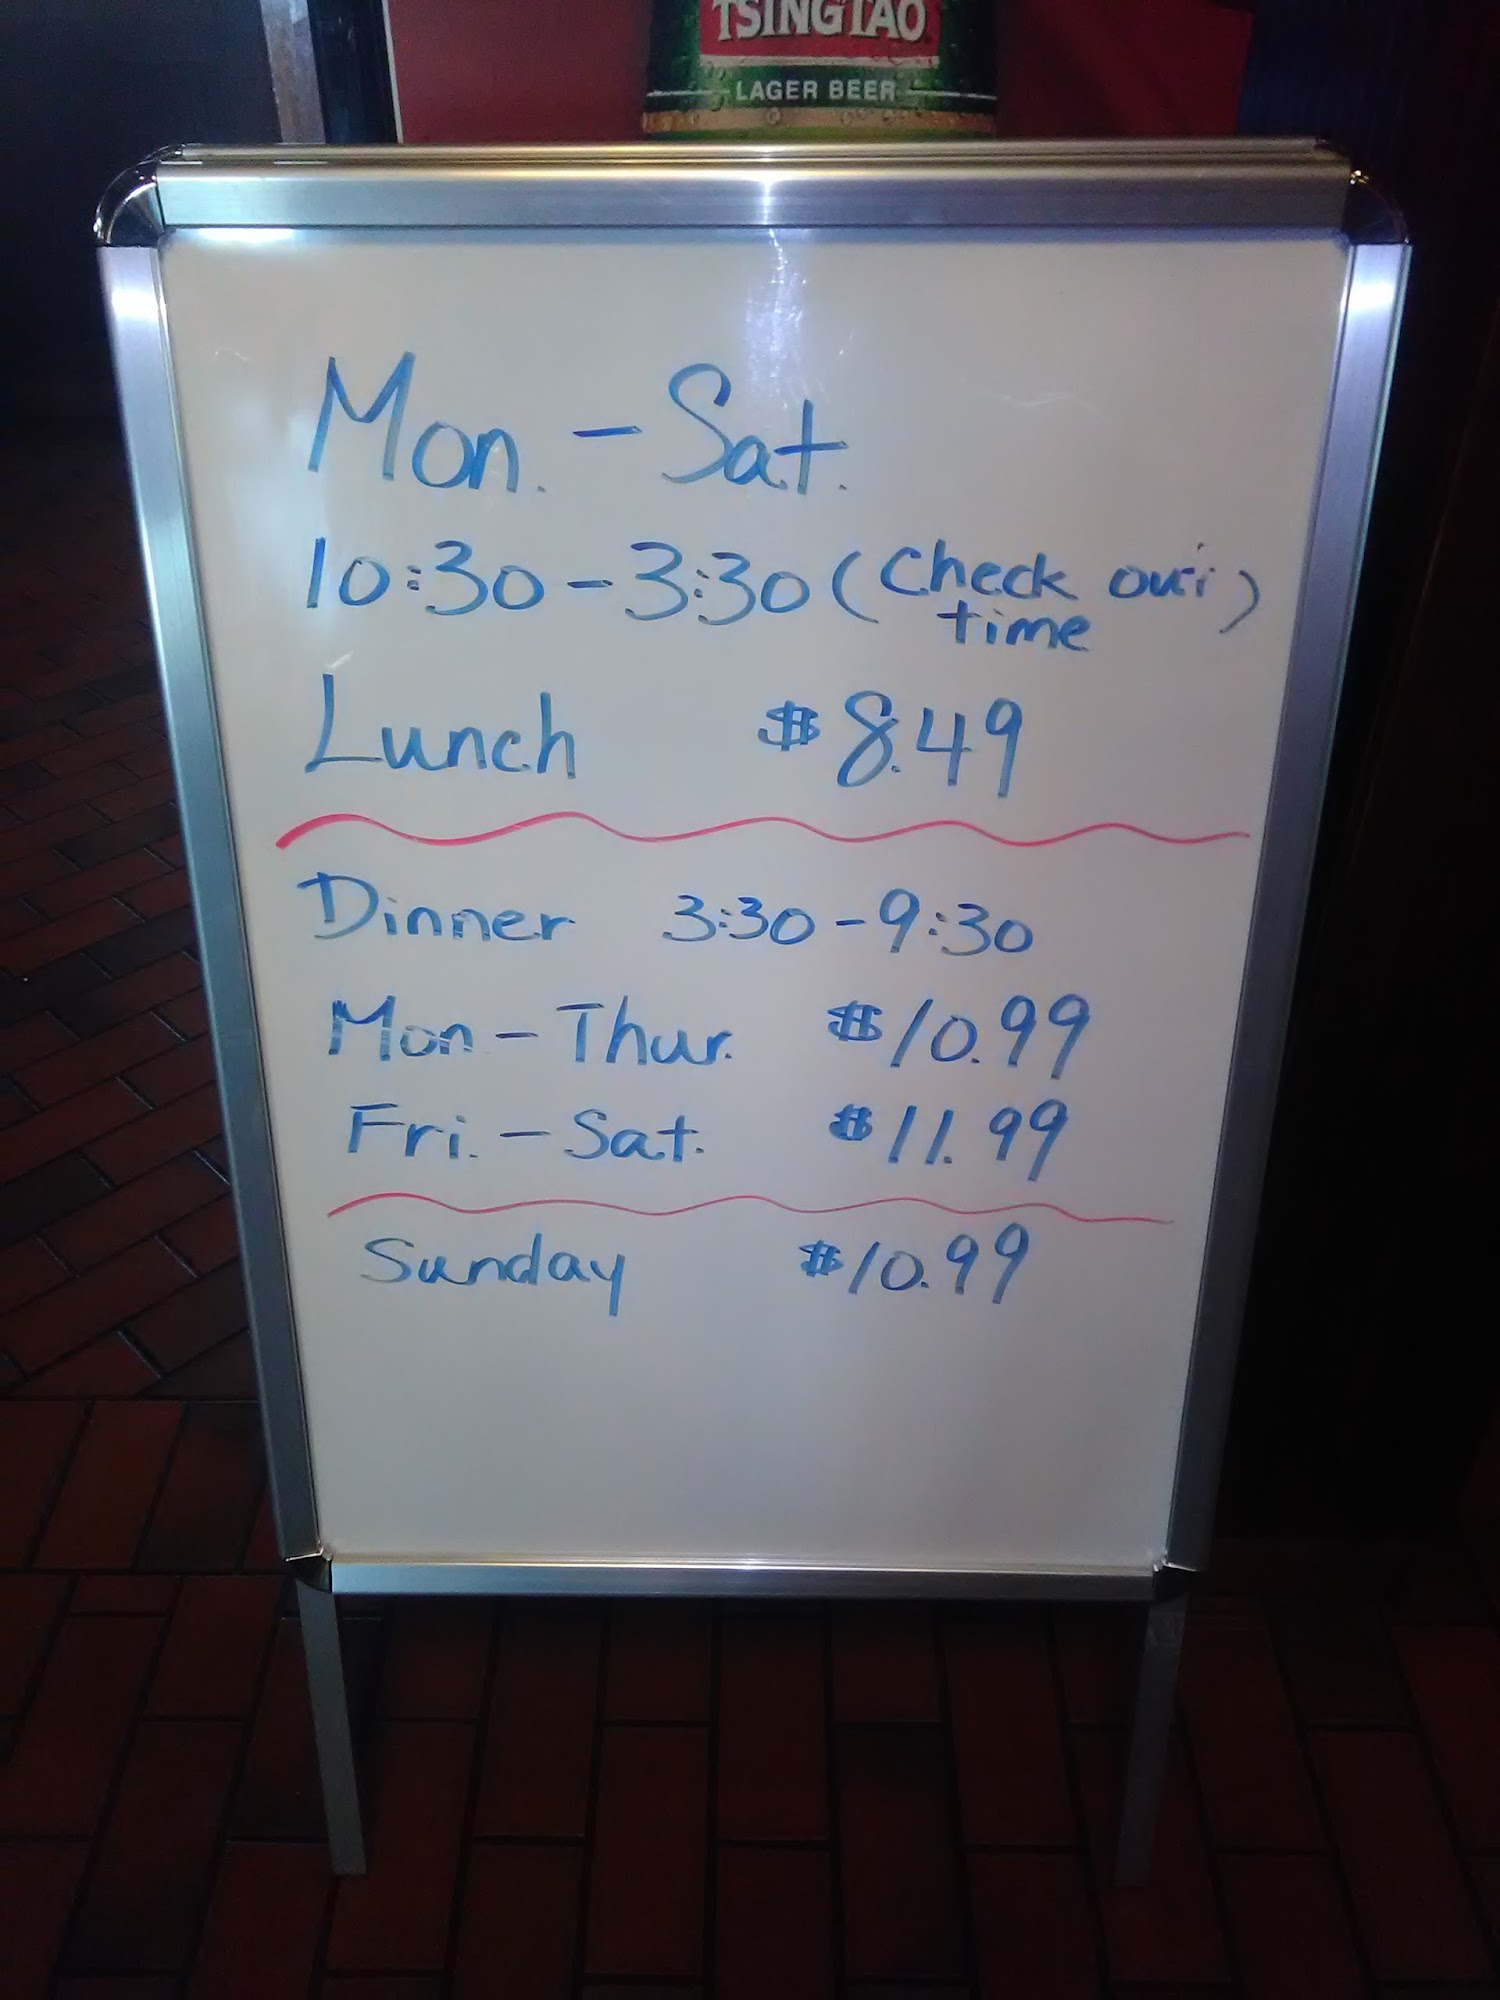 TSINGTAO
LAGER BEER
Mon. - Sat.
10:30 - 3:30 (Check out time)
Lunch $8.49
Dinner 3:30 - 9:30
Mon - Thur. $10.99
Fri. - Sat. $11.99
Sunday $10.99